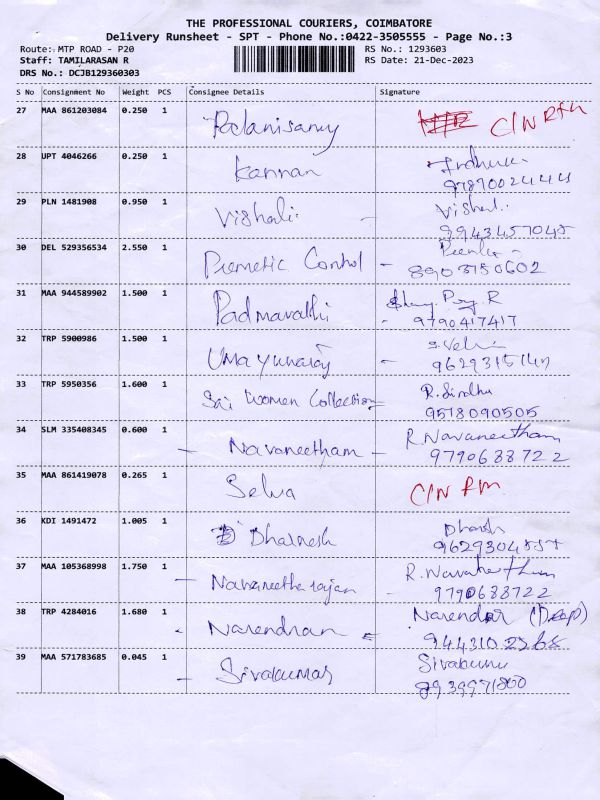 THE PROFESSIONAL COURIERS, COIMBATORE
Delivery Runsheet - SPT - Phone No.:0422-3505555 - Page No.:3
Route: MTP ROAD - P20 RS No.: 1293603
Staff: TAMILARASAN R RS Date: 21-Dec-2023
DRS No.: DCJB129360303
S No Consignment No Weight PCS Consignee Details Signature
27 MAA 861203084 0.250 1 Palanisamy C/N
28 UPT 4046266 0.250 1 Kannan
9787002444
29 PLN 1481908 0.950 1 Vishali - Vishali
9943457045
30 DEL 529356534 2.550 1 Control -
8903150602
31 MAA 944589902 1.500 1 Padmavathi
- 9790417417
32 TRP 5900986 1.500 1 Umayuvaraj - S.Velu
33 TRP 5950356 1.600 1 Sri Women Collection R. Sindhu
9518090505
34 SLM 335408345 0.600 1 - Navaneetham - R. Navaneetham
9790688722
35 MAA 861419078 0.265 1 Selva C/N
36 KDI 1491472 1.005 1 Dharnesh
37 MAA 105368998 1.750 1 - Navaneetha rajan R. Navaneetham
- 9790688722
38 TRP 4284016 1.680 1 - Narendran Narendar
39 MAA 571783685 0.045 1 - Sivakumar Sivakumar
8939971800